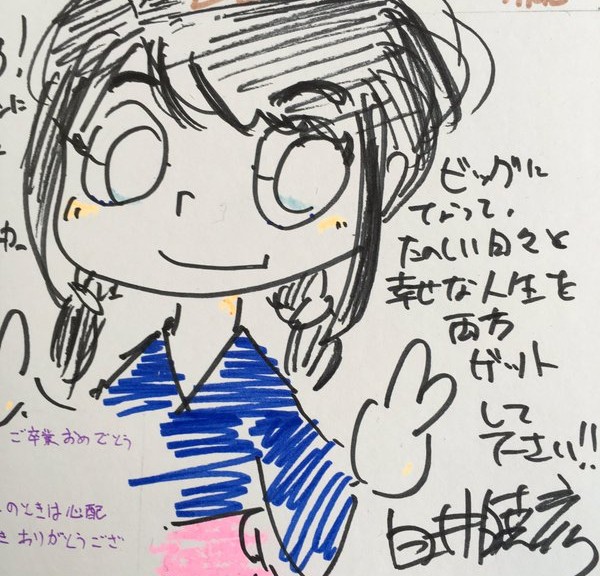 ビッグに
なって、
たのしい日々と
幸せな人生を
両方
ゲット
して
下さい!!
ご卒業おめでとう
のときは心配
ありがとうござ